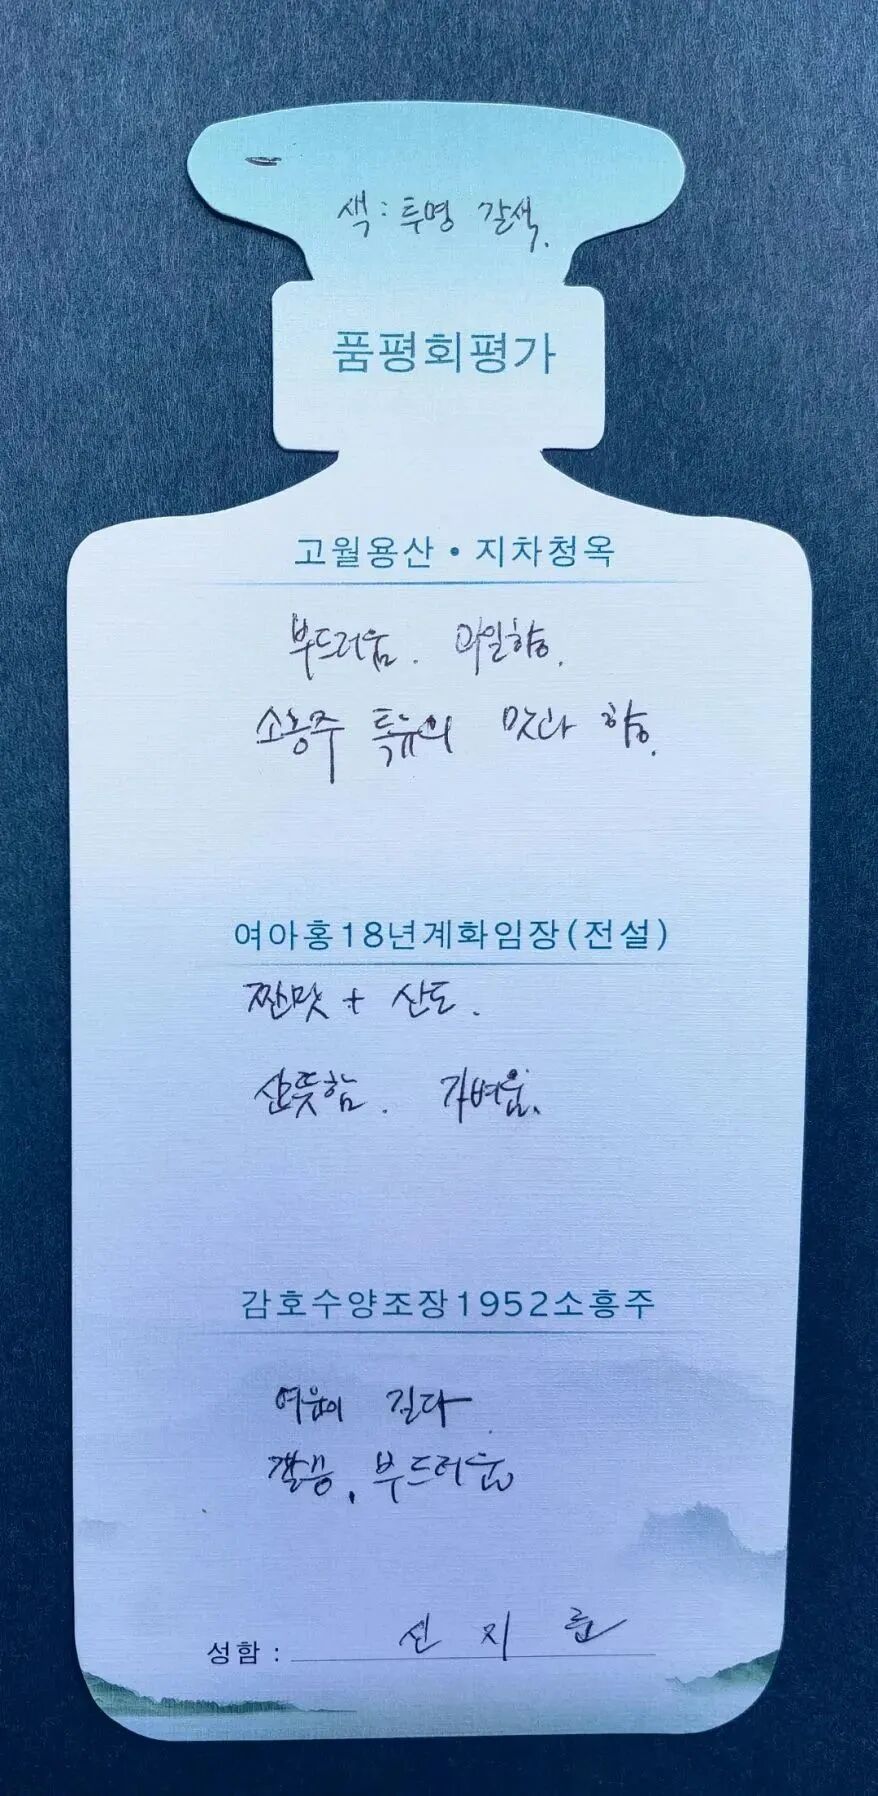 색: 투명 갈색.
품평회평가
고월용산·지차청옥
부드러움. 과일향.
소흥주 특유의 맛과 향.
여아홍18년계화임장(전설)
짠맛 + 산도.
산뜻함. 가벼움.
감호수양조장1952소흥주
여운이 길다
깔끔, 부드러움
성함: 신지